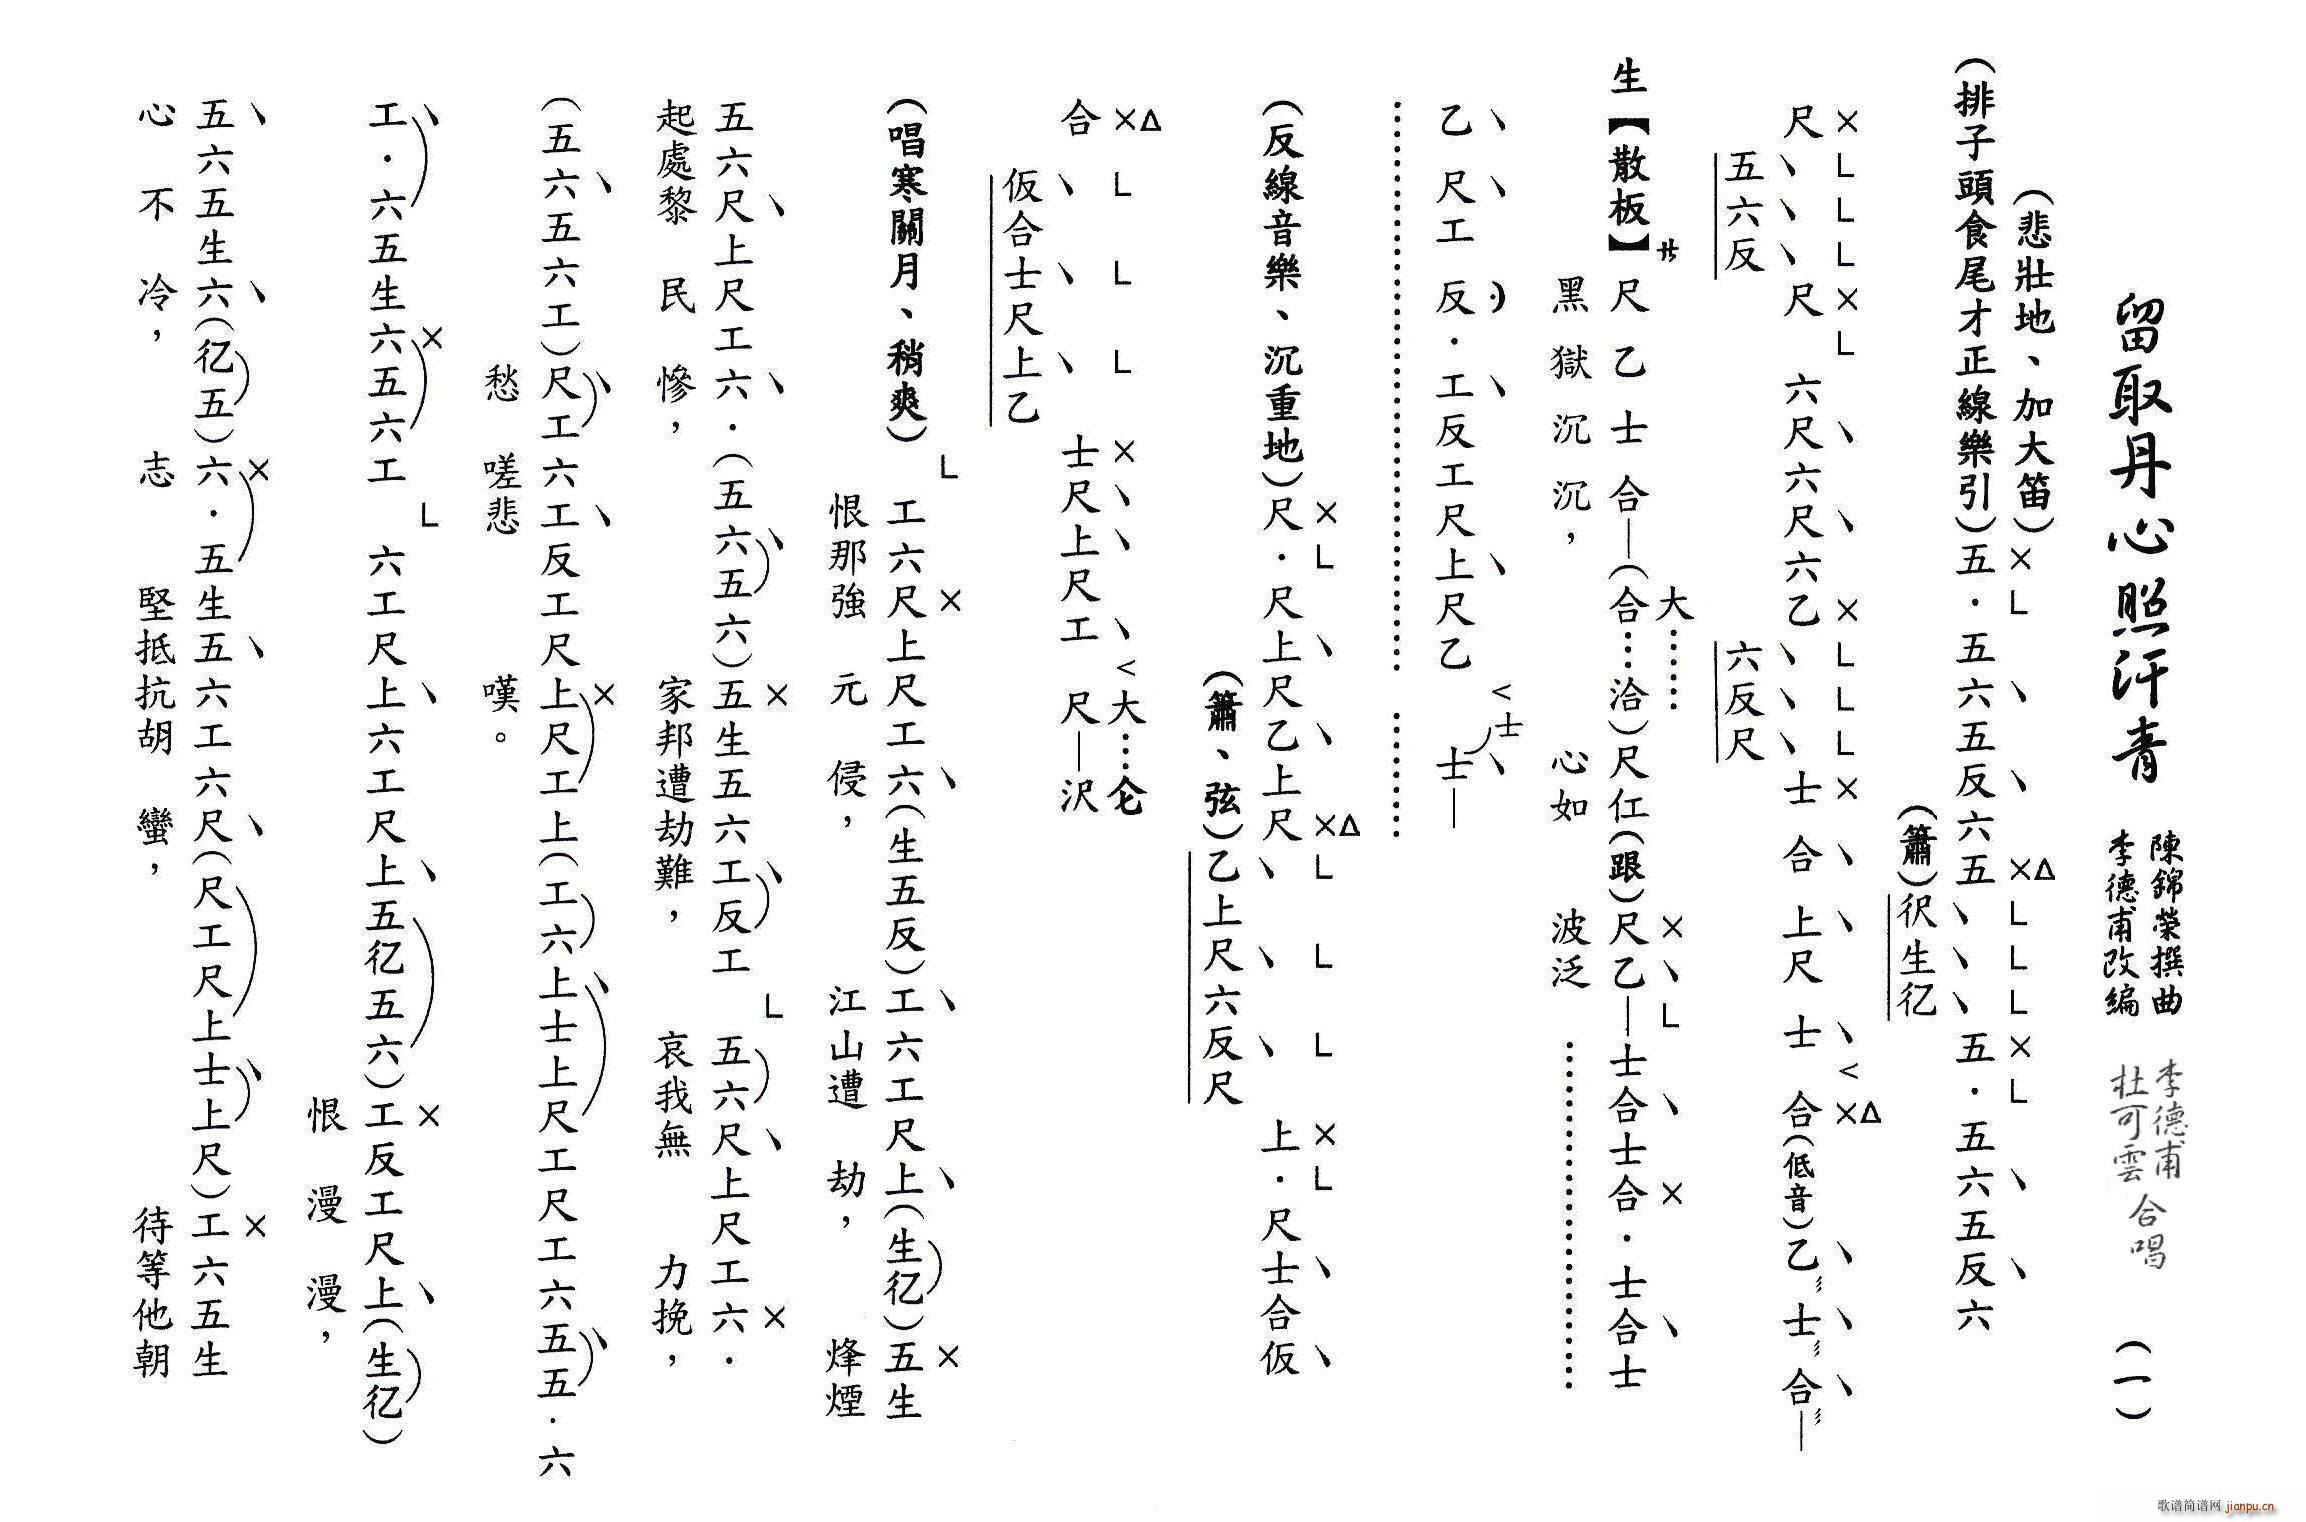 留取丹心照汗青
陳錦榮撰曲
李德甫改編
李德甫
杜可雲
合唱
(一)
(悲壯地、加大笛)
(排子頭食尾才正線樂引)五·五六五反六五 五·五六五反六
(簫)伬生亿
尺 尺 六尺六尺六乙 士合上尺士合(低音)乙士合—
五六反 六反尺
生【散板】尺乙士合—(合⋯洽)尺仩(跟)尺乙—士合士合·士合士
大⋯⋯
黑獄沉沉, 心如波泛
乙尺工反·工反工尺上尺乙 士—
士
(反線音樂、沉重地)尺·尺上尺乙上尺 上·尺士合仮
(簫、弦)乙上尺六反尺
合 士尺上尺工 尺—沢
大⋯仑
仮合士尺上乙
(唱寒關月、稍爽) 工六尺上尺工六(生五反)工六工尺上(生亿)五生
恨那強元侵, 江山遭劫, 烽煙
五六尺上尺工六·(五六五六)五生五六工反工 五六尺上尺工六·
起處黎民慘, 家邦遭劫難, 哀我無力挽,
(五六五六工)尺工六工反工尺上尺工上(工六上士上尺工尺工六五五·六
愁嗟悲嘆。
工·六五生六五六工 六工尺上六工尺上五亿五六)工反工尺上(生亿)
恨漫漫,
五六五生六(亿五)六·五生五六工六尺(尺工尺上士上尺)工六五生
心不冷, 志堅抵抗胡蠻, 待等他朝
歌谱简谱网 jianpu.cn